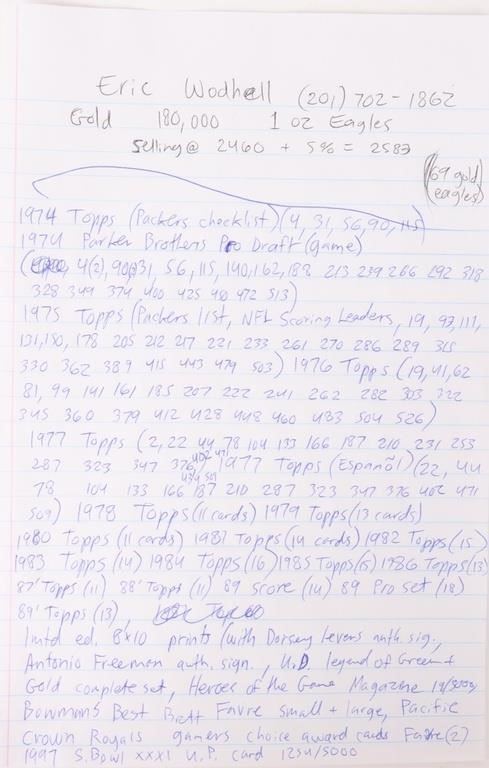 Eric Wodhell (201) 702-1862
Gold 180,000 1 oz Eagles
Selling @ 2460 + 5% = 2583
(69 gold eagles)
1974 Topps (Packers checklist) (4, 31, 56, 90, 115)
1974 Parker Brothers Pro Draft (game)
(4(2), 90, 31, 56, 115, 140, 162, 188 213 239 266 292 318
328 349 374 400 425 450 472 513)
1975 Topps (Packers list, NFL Scoring Leaders, 19, 93, 111,
131, 150, 178 205 212 217 221 233 261 270 286 289 315
330 362 389 415 443 479 503) 1976 Topps (19, 41, 62
81, 99 141 161 185 207 222 241 262 282 303 322
345 360 379 412 428 448 460 483 504 526)
1977 Topps (2, 22 44 78 104 133 166 187 210 231 253
287 323 347 376 402 471 509) 1977 Topps (Español) (22, 44
78 104 133 166 187 210 287 323 347 376 402 471
509) 1978 Topps (11 cards) 1979 Topps (13 cards)
1980 Topps (11 cards) 1981 Topps (14 cards) 1982 Topps (15)
1983 Topps (14) 1984 Topps (16) 1985 Topps (15) 1986 Topps (13)
87' Topps (11) 88' Topps (11) 89 Score (14) 89 Pro set (18)
89' Topps (13),
lmtd ed. 8x10 prints (with Dorsey Levens auth. sig.,
Antonio Freeman auth. sign., U.D. legend of Green +
Gold complete set, Heroes of the Game Magazine
Bowmans Best Brett Favre small + large, Pacific
Crown Royals gamers choice award cards Favre (2)
1997 S. Bowl XXXI U.P. card 1254/5000